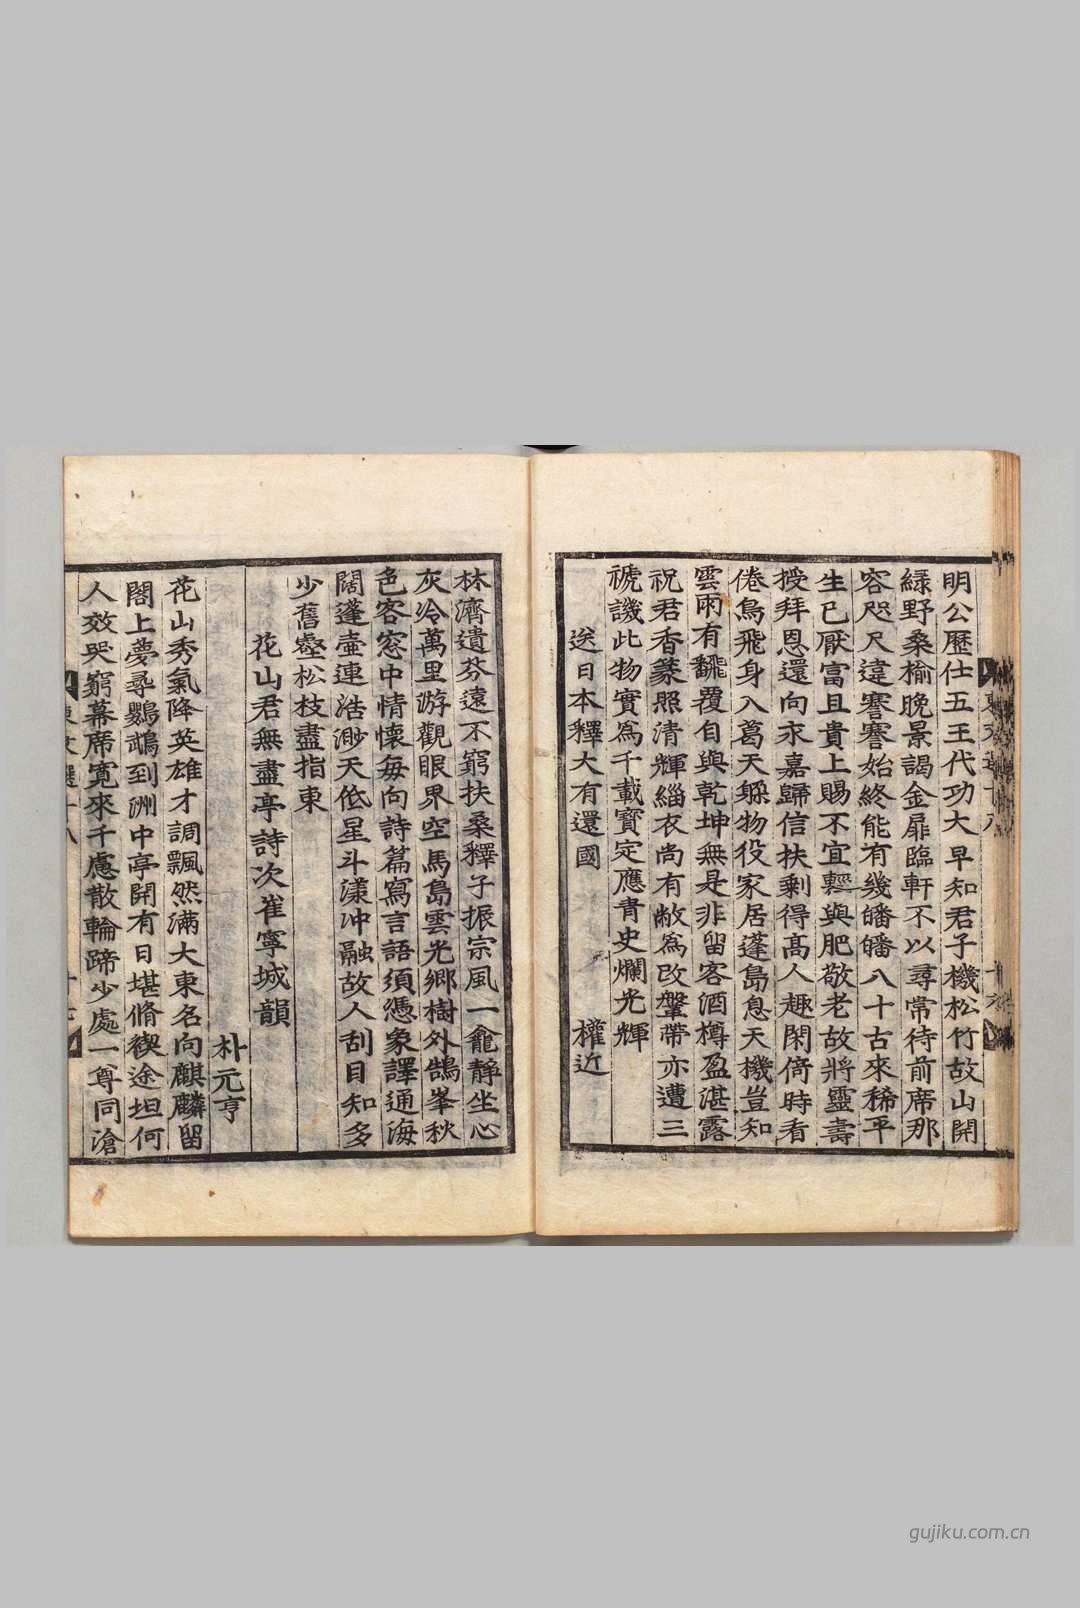 明公歷仕五王代功大早知君子機松竹故山開
綠野桑榆晚景謁金扉臨軒不以尋常待前席那
容咫尺違謇謇始終能有幾皤皤八十古來稀平
生已厭富且貴上賜不宜輕與肥敬老故將靈壽
授拜恩還向永嘉歸信扶剩得高人趣閑倚時看
倦鳥飛身入葛天躶物役家居蓬島息天機豈知
雲雨有飜覆自與乾坤無是非留客酒樽盈湛露
祝君香篆照清輝緇衣尚有敝爲改鞶帶亦遭三
褫譏此物實爲千載寶定應靑史爛光輝
送日本釋大有還國 權近
林濟遺芬遠不窮扶桑釋子振宗風一龕靜坐心
灰冷萬里游觀眼界空馬島雲光鄕樹外鵠峯秋
色客窓中情懷每向詩篇寫言語須憑象譯通海
闊蓬壺連浩渺天低星斗漾冲融故人刮目知多
少舊壑松枝盡指東
花山君無盡亭詩次崔寧城韻
朴元亨
花山秀氣降英雄才調飄然滿大東名向麒麟留
閣上夢尋鸚鵡到洲中亭開有日堪脩禊途坦何
人效哭窮幕席寬來千慮散輪蹄少處一尊同滄
東文選十八
gujiku.com.cn